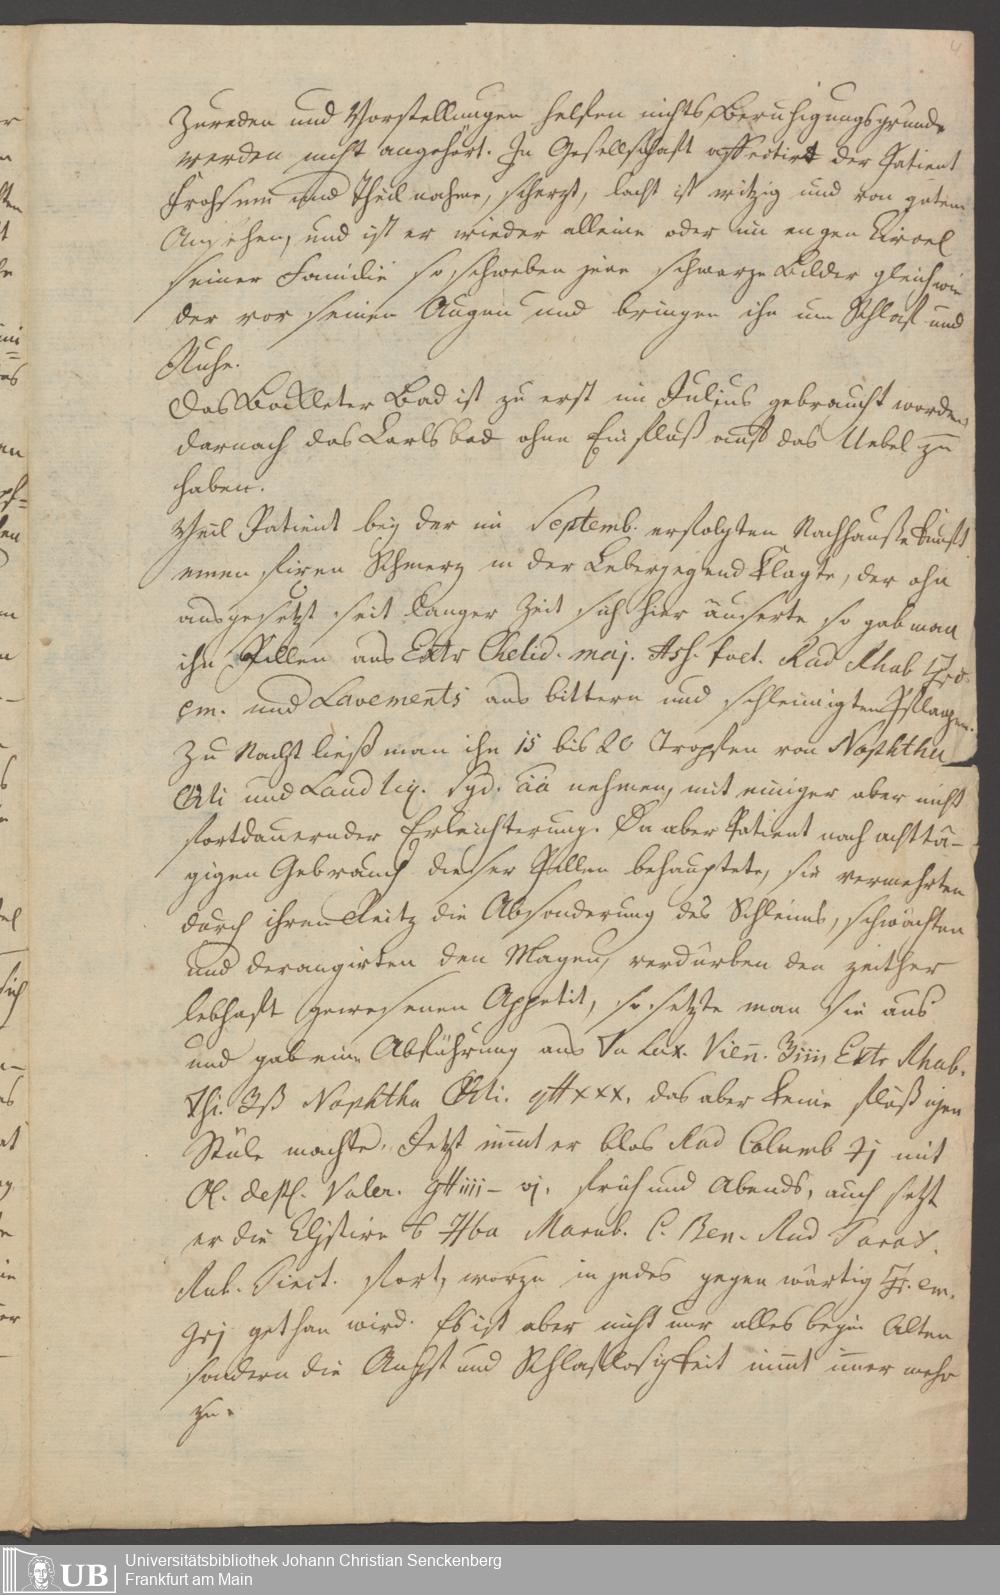 4
Zureden und Vorstellungen helfen nichts, Beruhigungsgründe
werden nicht angehört. In Gesellschaft affectirt der Patient
Frohsinn und Theilnahme, scherzt, lacht ist witzig und von gutem
Ansehen, und ist er wieder alleine oder im engen Cirkel
seiner Familie so schweben jene schwarze Bilder gleich wie
der vor seinen Augen und bringen ihn um Schlaf und
Ruhe.
Das Bockleter Bad ist zu erst im Julius gebraucht worden
darnach das Carlsbad ohne Einfluß auf das Uebel zu
haben.
Weil Patient bey der im Septemb. erfolgten Nachhauße kunft
einen fixen Schmerz in der Lebergegend klagte, der ohn
ausgesetzt seit langer Zeit sich hier äuserte so gab man
ihn Pillen aus Extr Chelid. maj. Ass. foet. Rad Rhab
em. und Lavements aus bittern und schleimigten Pflanzen.
Zu Nacht ließ man ihn 15 bis 20 Tropfen von Naphtha
und Laud liq. Syd. aa nehmen, mit einiger aber nicht
fortdauernder Erleichterung. Da aber Patient nach acht tä-
gigen Gebrauch dieser Pillen behauptete, sie vermehrten
durch ihren Reitz die Absonderung des Schleims, schwächten
und derangirten den Magen, verdürben den zeither
lebhaft gewesenen Appetit, so setzte man sie aus
und gab eine Abführung aus Lax. Vien. Extr Rhab.
Naphtha gtt xxx, das aber keine flüßigen
Stüle machte. Jetzt nimt er blos Rad Columb mit
Ol. dest. Valer. gtt iiii - vj. früh und Abends, auch setzt
er die Clystire Hba Marub. C. Ben. Rad Tarax.
Rub. Tinct. fort, worzu in jedes gegenwärtig em.
gethan wird. Es ist aber nicht nur alles beym Alten
sondern die Angst und Schlaflosigkeit nimt immer mehr
zu.
UB
Universitätsbibliothek Johann Christian Senckenberg
Frankfurt am Main